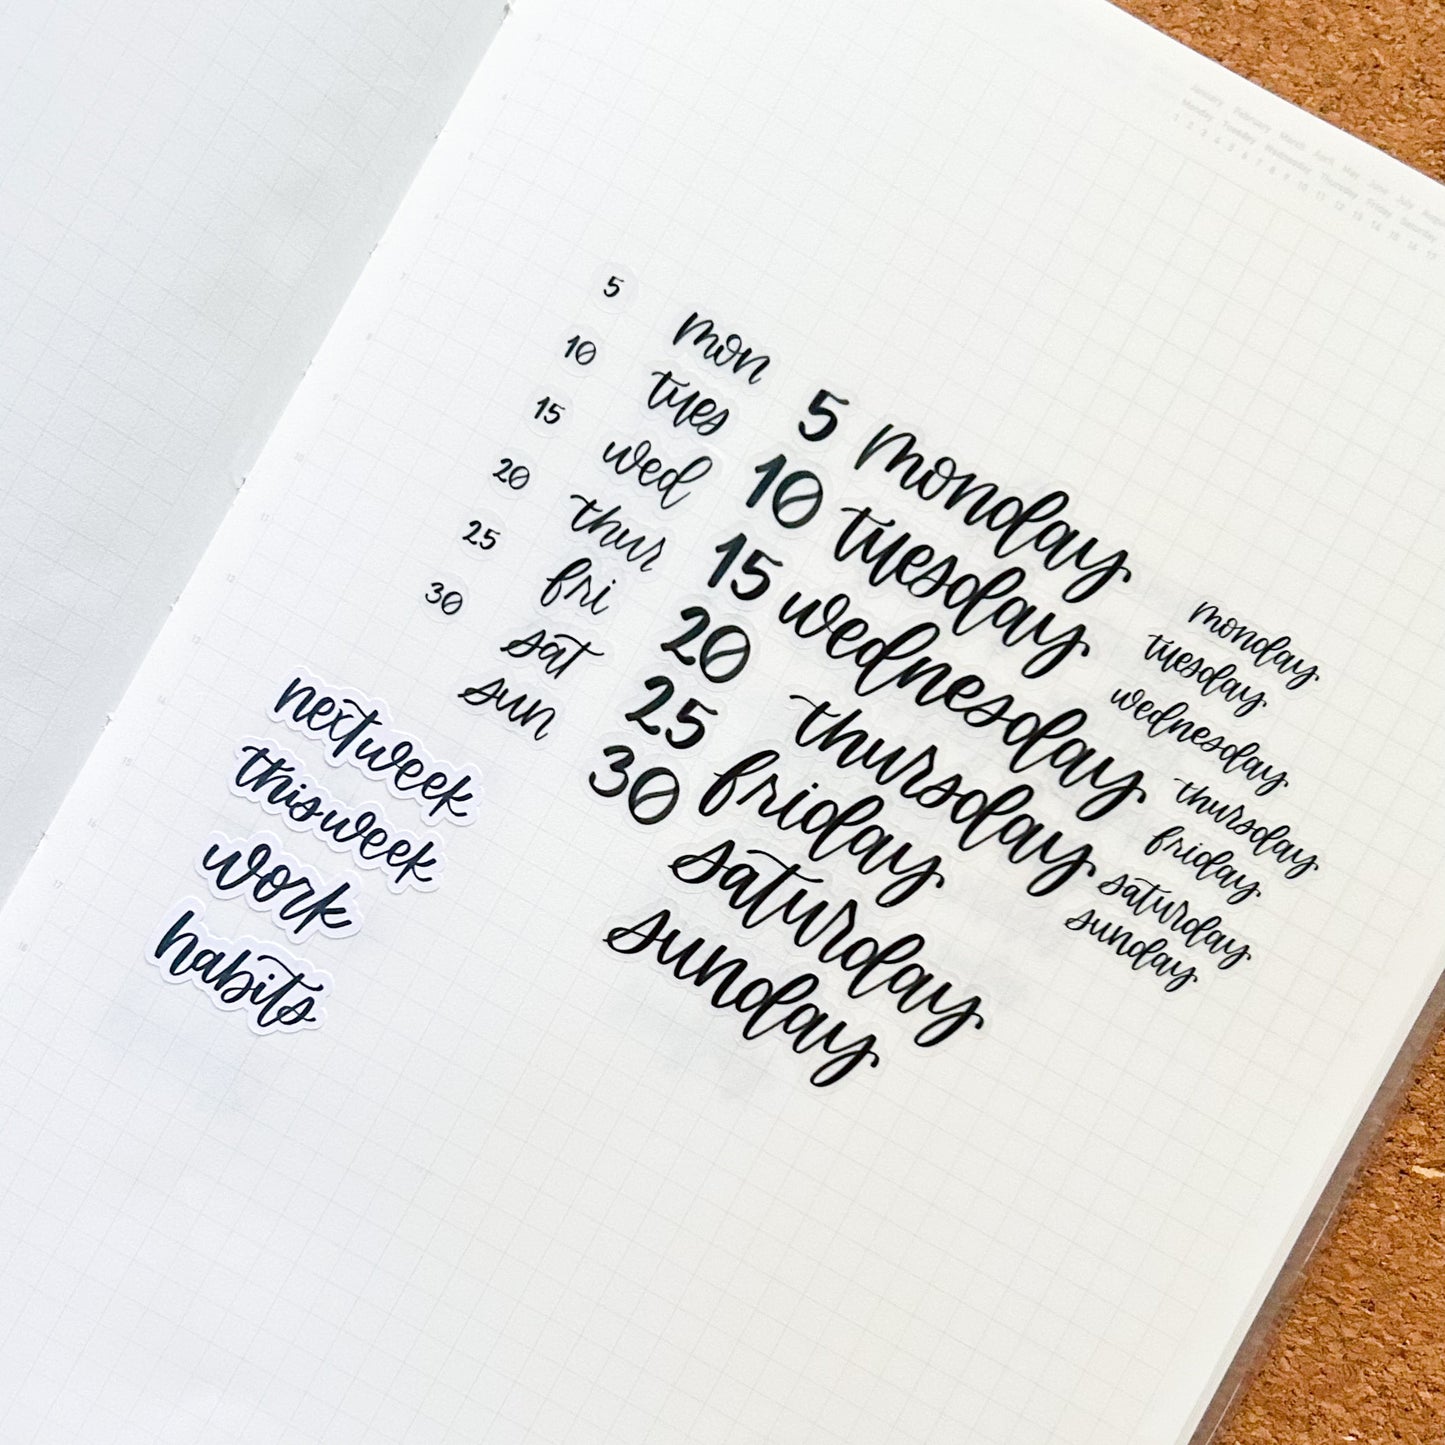 January February March April May June July
Monday Tuesday Wednesday Thursday Friday Saturday
1 2 3 4 5 6 7 8 9 10 11 12 13 14 15 16 17
5
10
15
20
25
30
mon
tues
wed
thur
fri
sat
sun
5
10
15
20
25
30
monday
tuesday
wednesday
thursday
friday
saturday
sunday
monday
tuesday
wednesday
thursday
friday
saturday
sunday
next week
this week
work
habits